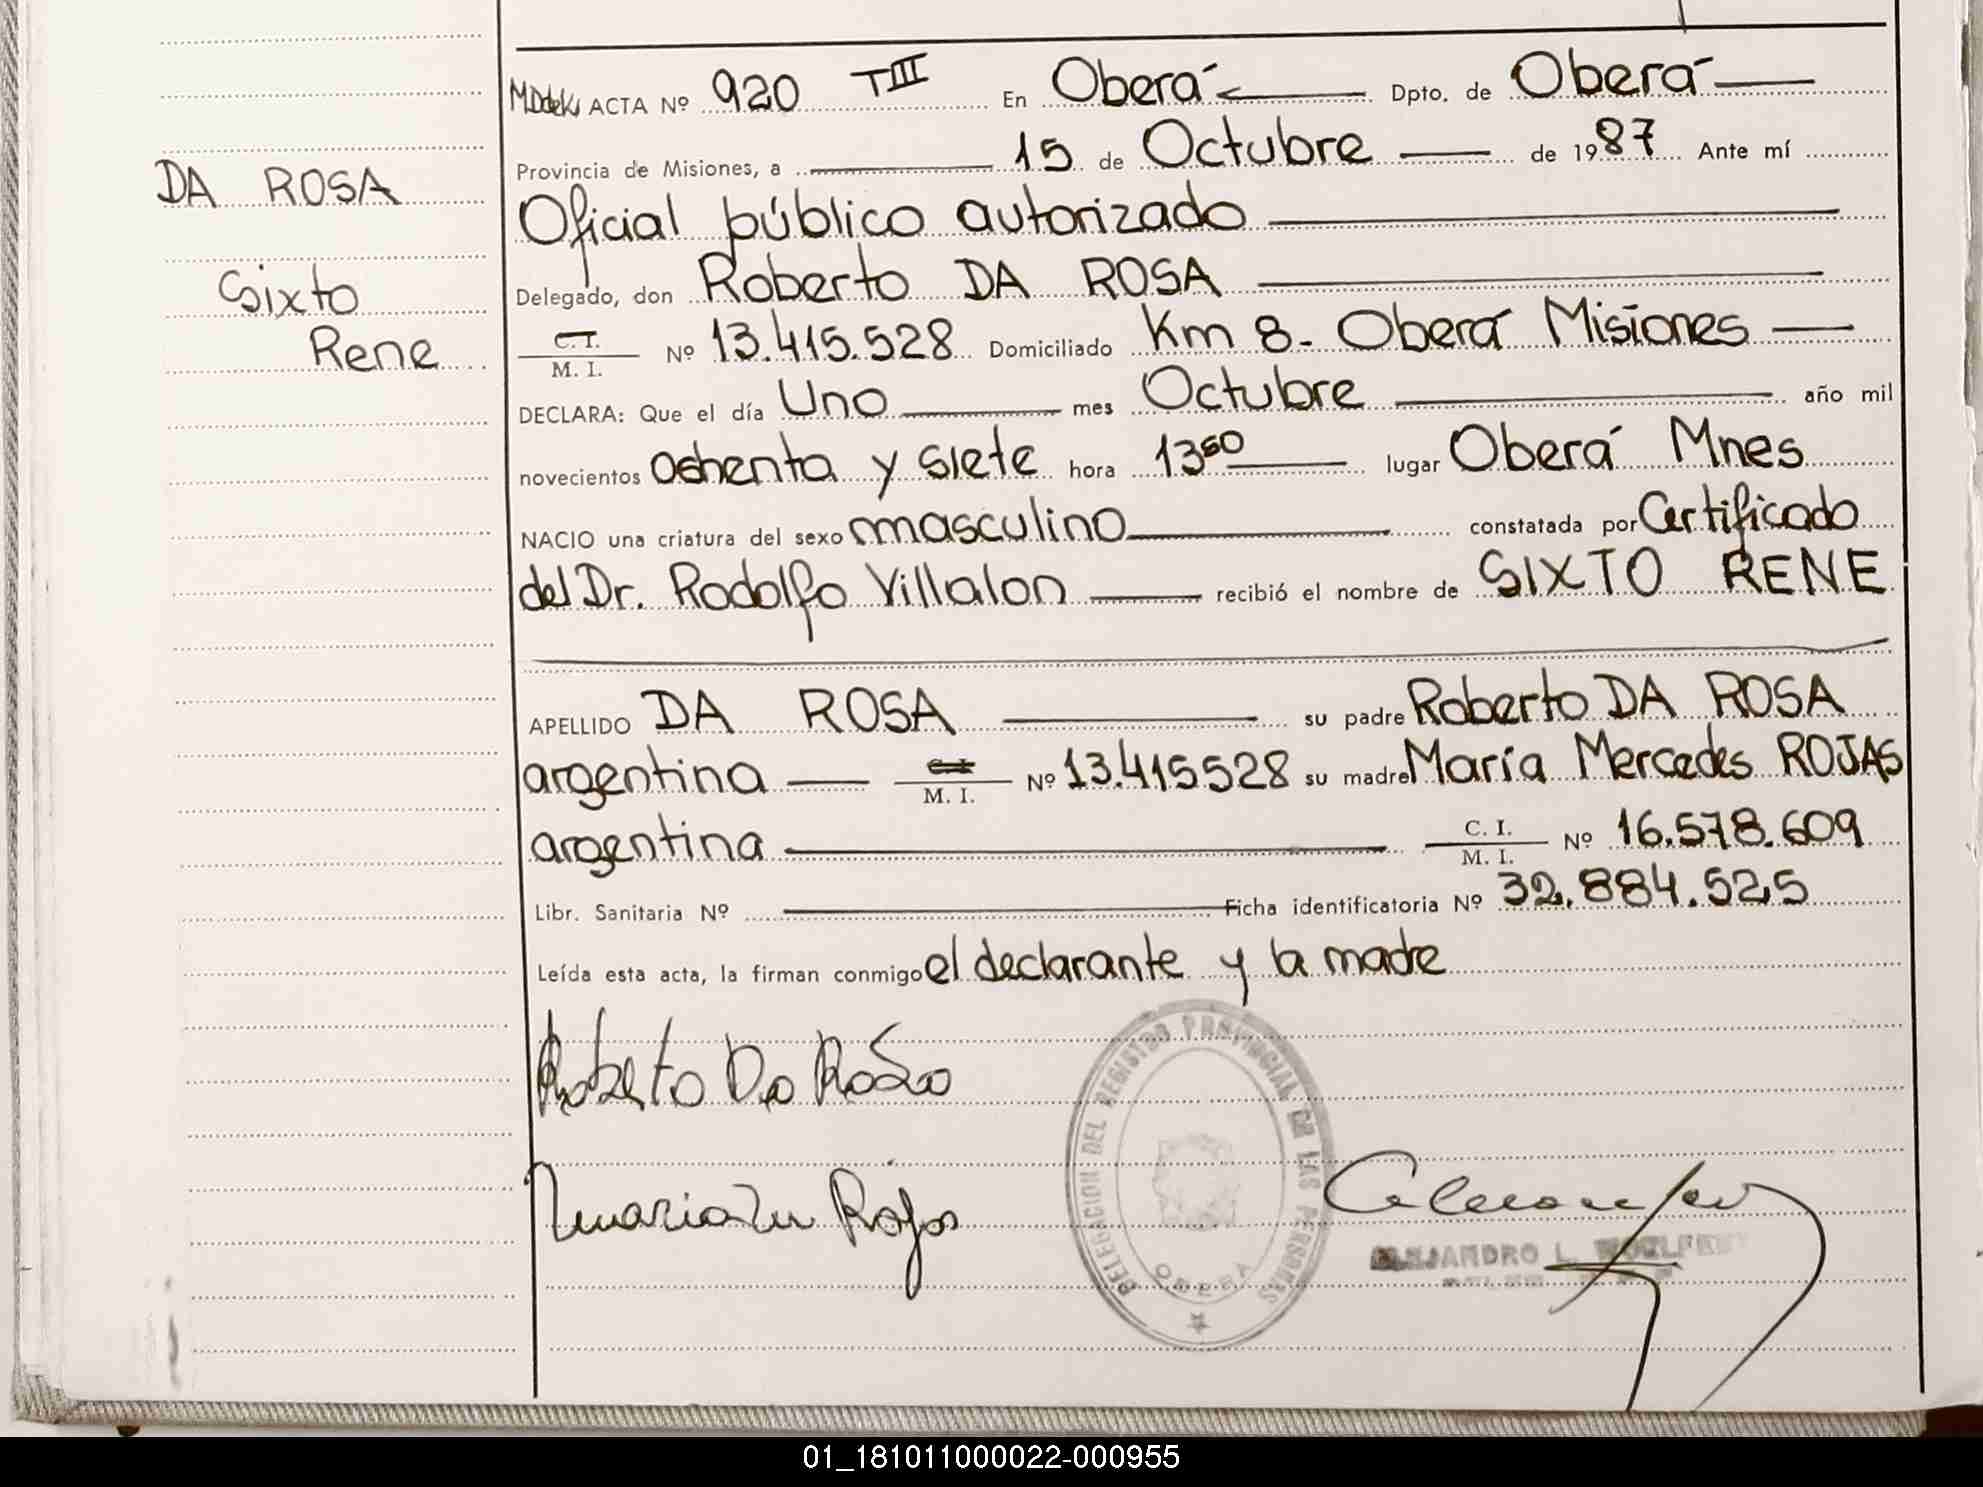 ACTA Nº 920 TIII En Oberá Dpto. de Oberá
Provincia de Misiones, a 15 de Octubre de 1987 Ante mí
DA ROSA
Oficial público autorizado
Sixto
Delegado, don Roberto DA ROSA
Rene
C. I. M. I. Nº 13.415.528 Domiciliado Km 8- Oberá Misiones
DECLARA: Que el día Uno mes Octubre año mil
novecientos ochenta y siete hora 13 lugar Oberá Mnes
NACIO una criatura del sexo masculino constatada por Certificado
del Dr. Rodolfo Villalon recibió el nombre de SIXTO RENE
APELLIDO DA ROSA su padre Roberto DA ROSA
argentina M. I. Nº 13.415528 su madre María Mercedes ROJAS
argentina C. I. M. I. Nº 16.578.609
Libr. Sanitaria Nº Ficha identificatoria Nº 32.884.525
Leída esta acta, la firman conmigo el declarante y la madre
Roberto Da Rosa
DELEGACION DEL REGISTRO PROVINCIAL DE LAS PERSONAS
OBERA
Maria M Rojas
ALEJANDRO L.
01_181011000022-000955